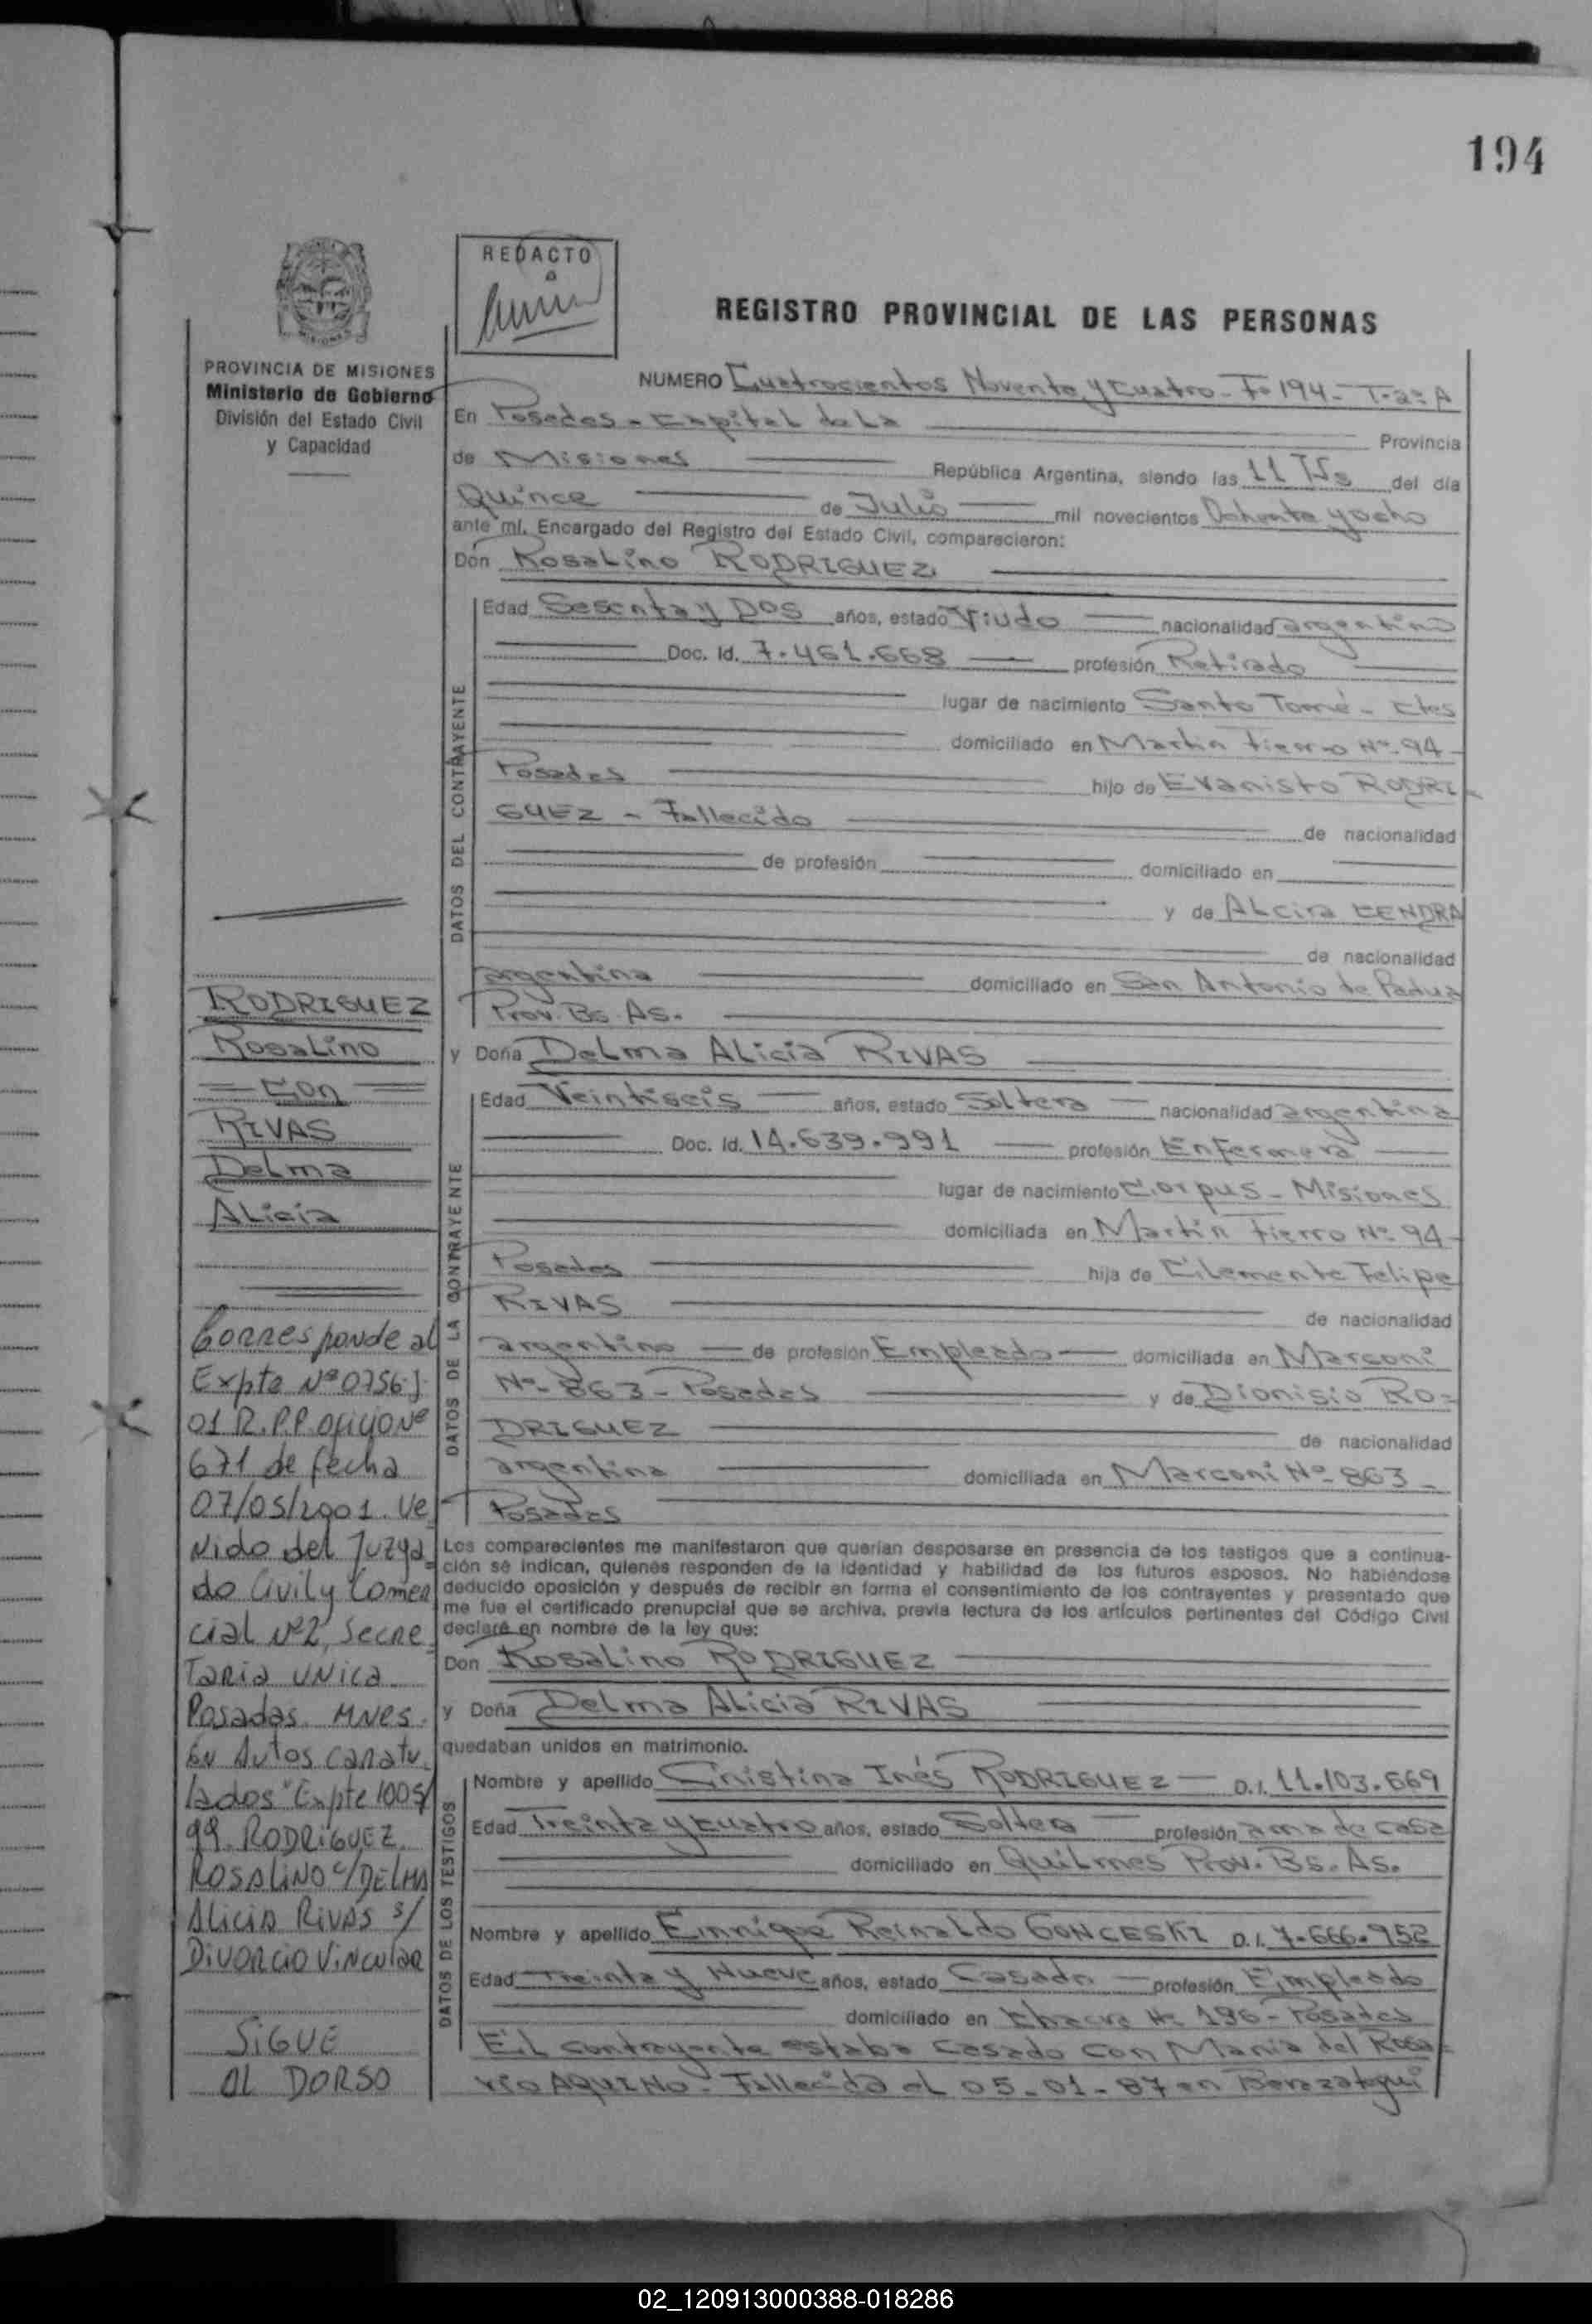 194
REDACTO
REGISTRO PROVINCIAL DE LAS PERSONAS
PROVINCIA DE MISIONES
Ministerio de Gobierno
División del Estado Civil
y Capacidad
NUMERO Cuatrocientos Noventa y Cuatro - Fº 194 - T-2º A
En Posadas - Capital de La Provincia
de Misiones República Argentina, siendo las 11 15s del día
Quince de Julio mil novecientos Ochenta y ocho
ante mí, Encargado del Registro del Estado Civil, comparecieron:
Don Rosalino RODRIGUEZ
DATOS DEL CONTRAYENTE
Edad Sesenta y Dos años, estado Viudo nacionalidad argentino
Doc. Id. 7.461.668 profesión Retirado
lugar de nacimiento Santo Tomé - Ctes
domiciliado en Martín Fierro Nº 94 -
Posadas hijo de Evaristo RODRI-
GUEZ - Fallecido de nacionalidad
de profesión domiciliado en
y de Alcira CENDRA
de nacionalidad
argentina domiciliado en San Antonio de Padua
Prov. Bs. As.
y Doña Delma Alicia RIVAS
DATOS DE LA CONTRAYENTE
Edad Veintiseis años, estado Soltera nacionalidad argentina
Doc. Id. 14.639.991 profesión Enfermera
lugar de nacimiento Corpus - Misiones
domiciliada en Martín Fierro Nº 94 -
Posadas hija de Clemente Felipe
RIVAS de nacionalidad
argentino de profesión Empleado domiciliada en Marconi
Nº 863 - Posadas y de Dionisia RO=
DRIGUEZ de nacionalidad
argentina domiciliada en Marconi Nº 863 -
Posadas
Los comparecientes me manifestaron que querían desposarse en presencia de los testigos que a continua-
ción se indican, quienes responden de la identidad y habilidad de los futuros esposos. No habiéndose
deducido oposición y después de recibir en forma el consentimiento de los contrayentes y presentado que
me fue el certificado prenupcial que se archiva, previa lectura de los artículos pertinentes del Código Civil
declaré en nombre de la ley que:
Don Rosalino RODRIGUEZ
y Doña Delma Alicia RIVAS
quedaban unidos en matrimonio.
DATOS DE LOS TESTIGOS
Nombre y apellido Cristina Inés RODRIGUEZ - D.I. 11.103.669
Edad Treinta y Cuatro años, estado Soltera profesión ama de casa
domiciliado en Quilmes Prov. Bs. As.
Nombre y apellido Enrique Reinaldo GONCESKI D.I. 7.666.952
Edad Treinta y Nueve años, estado Casado profesión Empleado
domiciliado en Chacra Nº 196 - Posadas
El contrayente estaba casado con María del Rosa=
rio AQUINO - Fallecida el 05-01-87 en Berazategui
RODRIGUEZ
Rosalino
= Con =
RIVAS
Delma
Alicia
Corresponde al
Expte Nº 0756 J
01 R.P.P. oficio Nº
671 de fecha
07/05/2001. Ve
nido del Juzga
do Civil y Comer
cial Nº 2, Secre
taria unica
Posadas Mnes.
en Autos caratu
lados "Expte 1005/
99 RODRIGUEZ
ROSALINO c/ DELMA
Alicia Rivas s/
Divorcio Vincular
SIGUE
AL DORSO
02_120913000388-018286